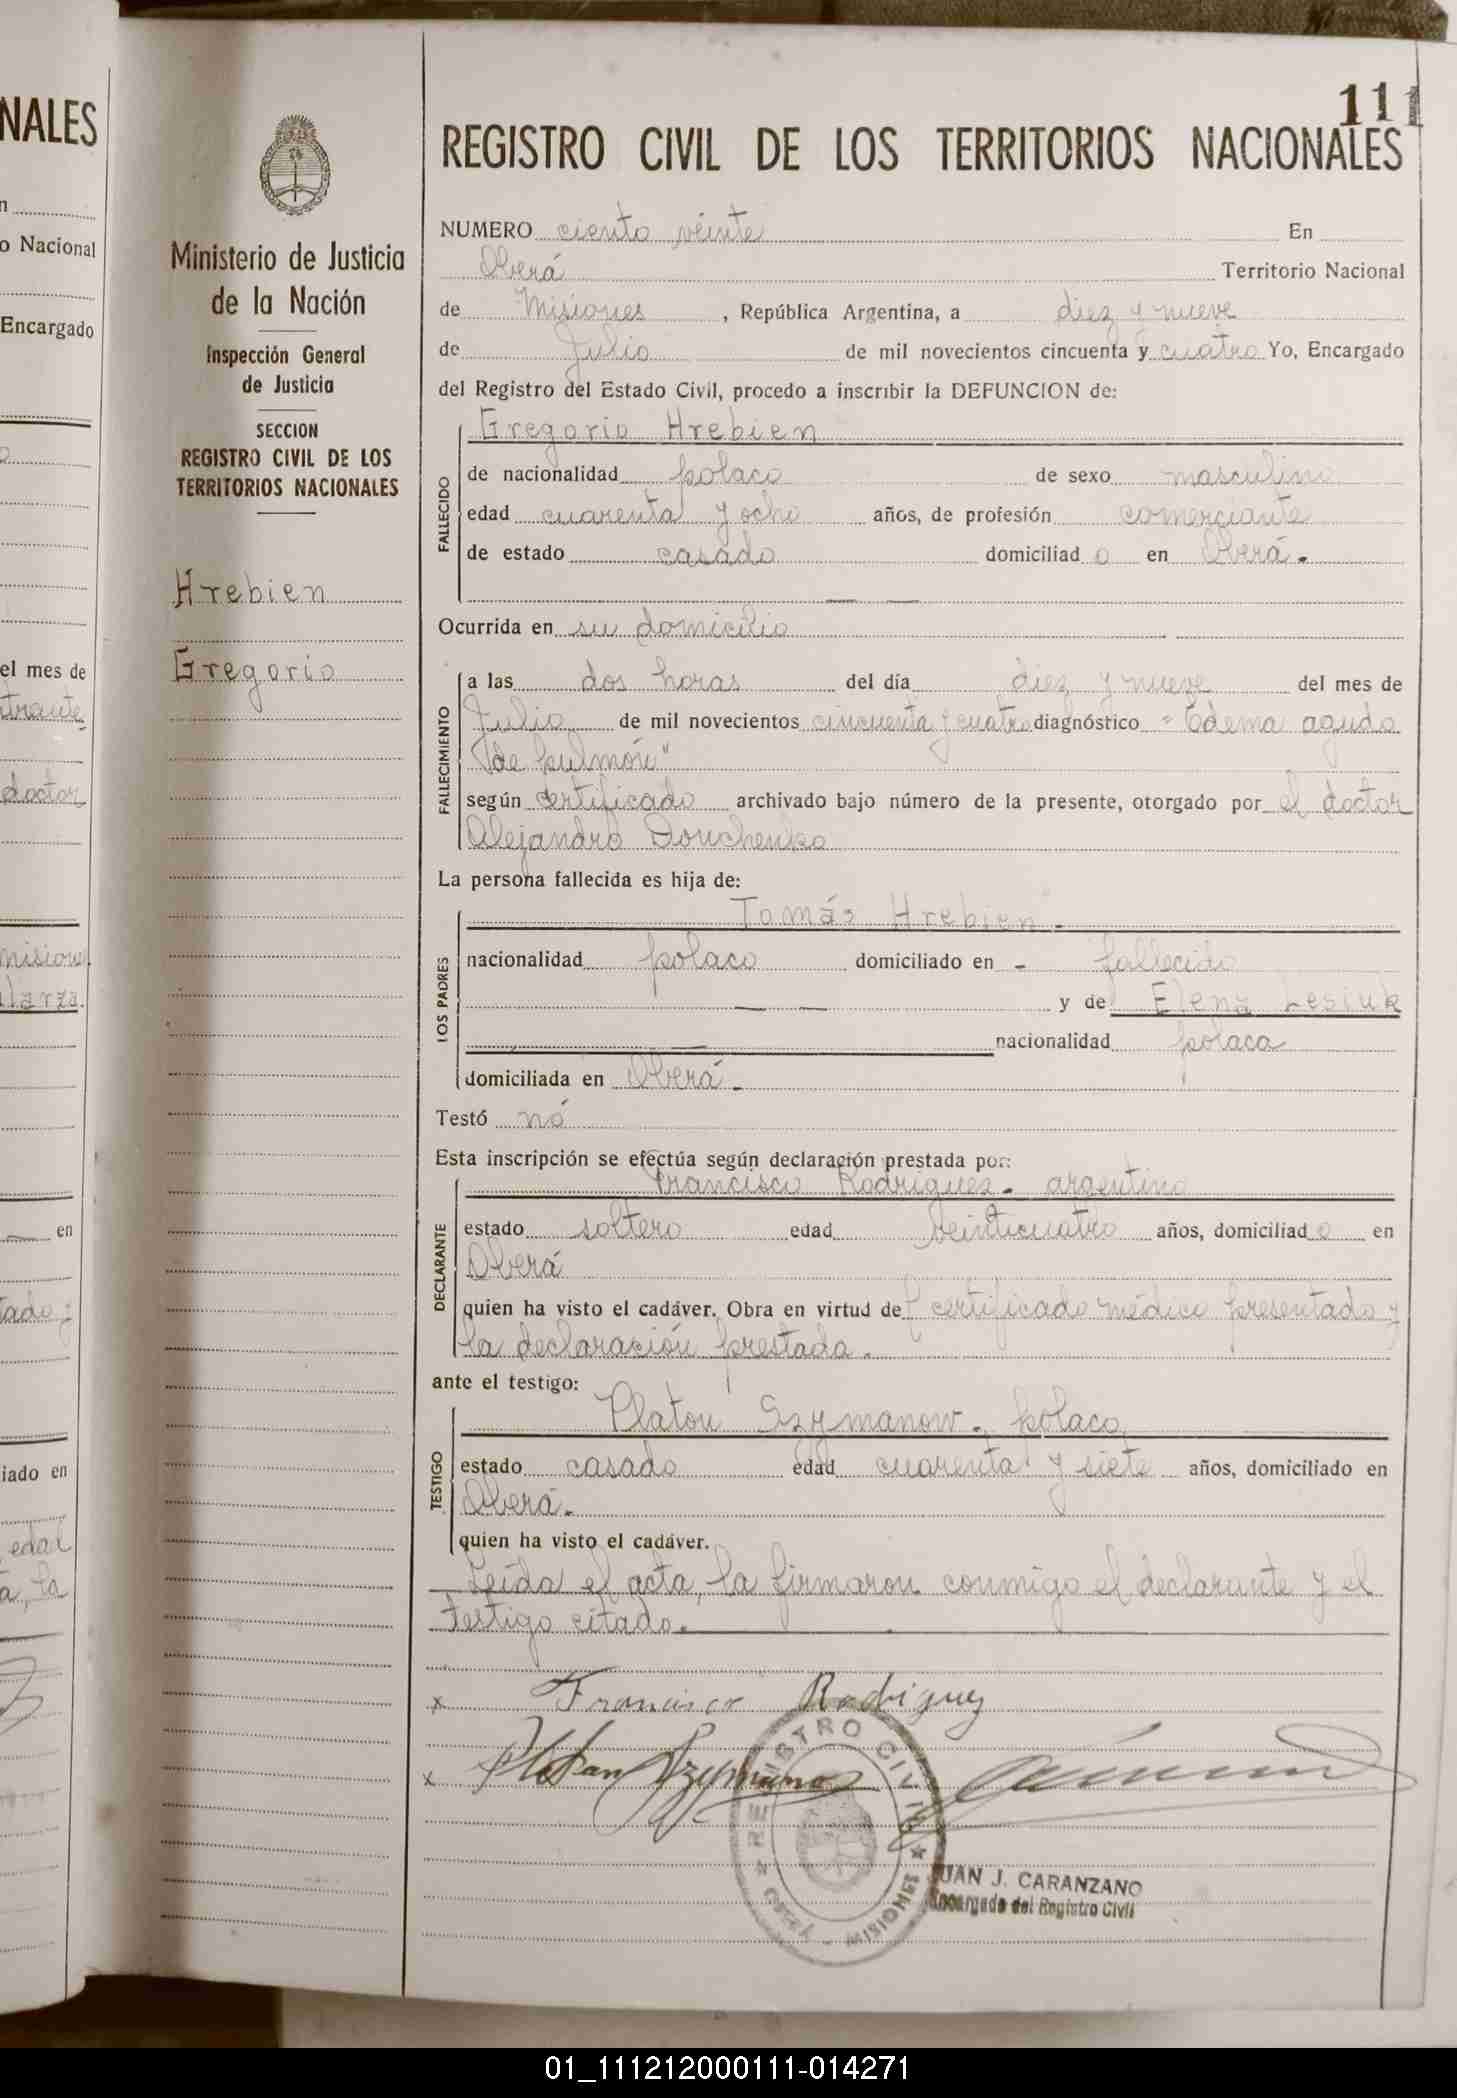 111
REGISTRO CIVIL DE LOS TERRITORIOS NACIONALES
Ministerio de Justicia
de la Nación
Inspección General
de Justicia
SECCION
REGISTRO CIVIL DE LOS
TERRITORIOS NACIONALES
Hrebien
Gregorio
NUMERO ciento veinte En
Oberá Territorio Nacional
de Misiones, República Argentina, a diez y nueve
de Julio de mil novecientos cincuenta y cuatro Yo, Encargado
del Registro del Estado Civil, procedo a inscribir la DEFUNCION de:
FALLECIDO
Gregorio Hrebien
de nacionalidad polaco de sexo masculino
edad cuarenta y ocho años, de profesión comerciante
de estado casado domiciliad o en Oberá.
Ocurrida en su domicilio
FALLECIMIENTO
a las dos horas del día diez y nueve del mes de
Julio de mil novecientos cincuenta y cuatro diagnóstico "Edema agudo
de pulmón"
según certificado archivado bajo número de la presente, otorgado por el doctor
Alejandro
La persona fallecida es hija de:
LOS PADRES
Tomás Hrebien.
nacionalidad polaco domiciliado en - fallecido
y de Elena Lesiuk
nacionalidad polaca
domiciliada en Oberá.
Testó nó
Esta inscripción se efectúa según declaración prestada por:
DECLARANTE
Francisco Rodriguez. argentino
estado soltero edad veinticuatro años, domiciliad o en
Oberá
quien ha visto el cadáver. Obra en virtud de certificado médico presentado y
la declaración prestada.
ante el testigo:
TESTIGO
Platon Szymanow. polaco
estado casado edad cuarenta y siete años, domiciliado en
Oberá.
quien ha visto el cadáver.
Leída el acta, la firmaron conmigo el declarante y el
testigo citado.
x Francisco Rodriguez
x Platan Szymano
REGISTRO CIVIL
OBERÁ - MISIONES
JUAN J. CARANZANO
Encargado del Registro Civil
NALES
o Nacional
Encargado
el mes de
doctor
en
iado en
edad
a, la
01_111212000111-014271